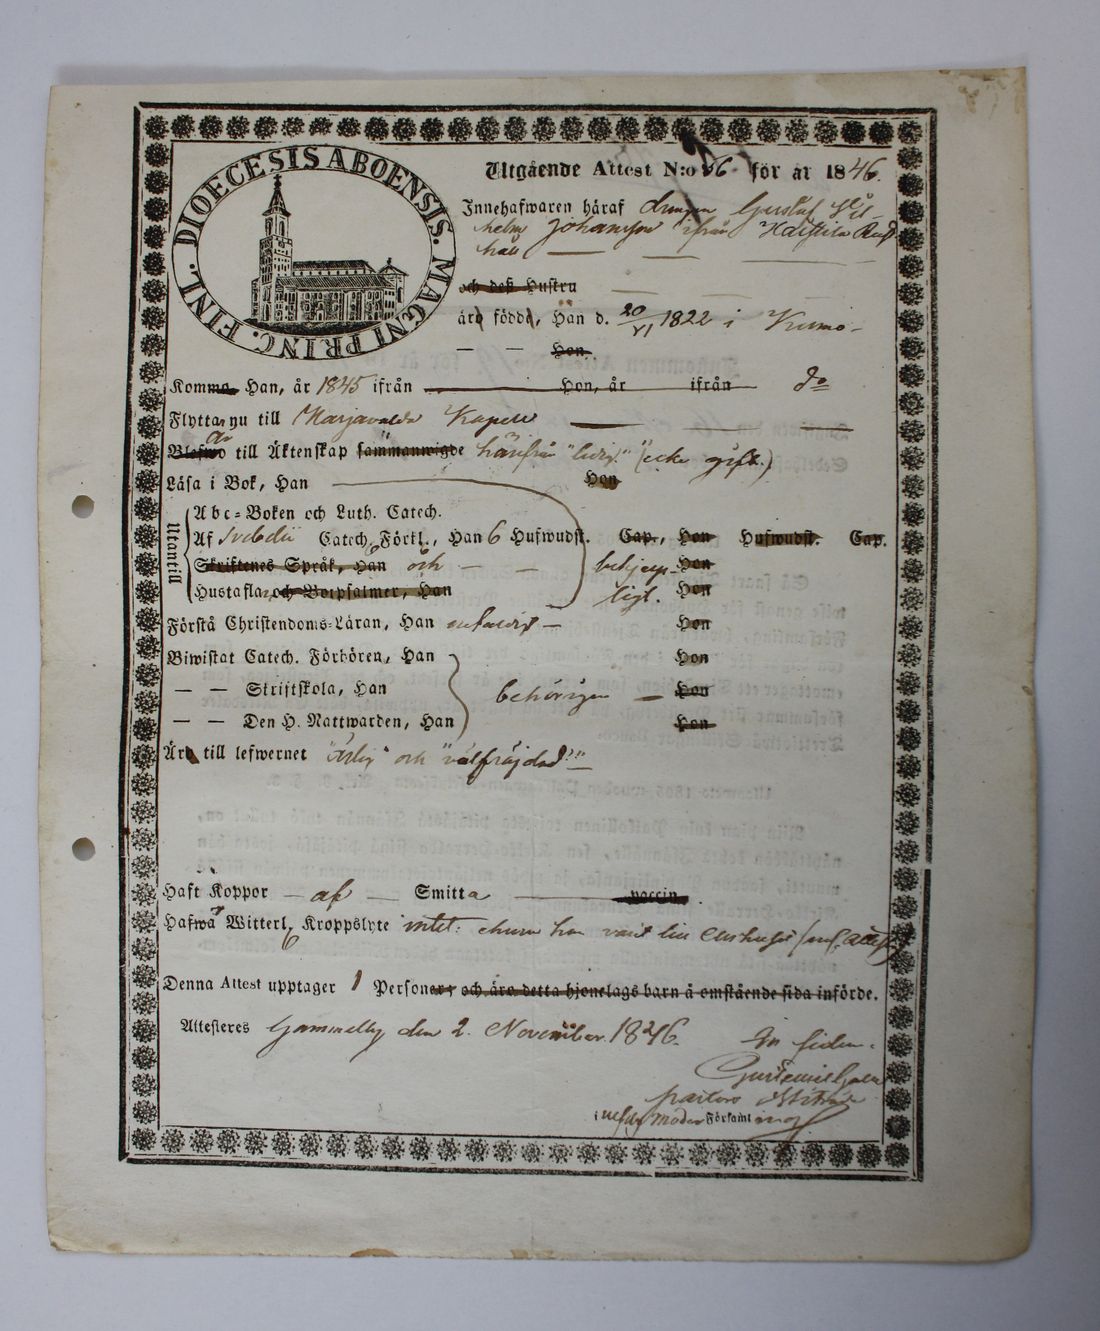 DIOECESIS ABOENSIS. MAGNI PRINC. FINL.
Utgående Attest N:o 56 för år 1846.
Innehafwaren häraf drengen Gustaf Wil-
helm Johansson ifrån
och deß Hustru
äro födde, Han d. 20/VI 1822 i Kumo
Hon
Komma Han, år 1845 ifrån Hon, år ifrån do
Flytta nu till Karjavalda Kapell
är till Äktenskap sammanwigde härifrån "ledig" (icke gift.)
Läsa i Bok, Han Hon
Utantill
Abc-Boken och Luth. Catech.
Af Svebelii Catech. Förkl., Han 6 Hufwudst. Cap., Hon Hufwudst. Cap.
Skriftenes Språk, Han och Hon
Hustaflan och Botpsalmer, Han Hon
Förstå Christendoms-Läran, Han Hon
Biwistat Catech. Förhören, Han Hon
— — Skriftskola, Han behörigen Hon
— — Den H. Nattwarden, Han Hon
Äro till lefwernet "ärlig" och "välfräjdad"
Haft Koppor af Smitta vaccin.
Hafwa Witterl. Kroppslyte intet:
Denna Attest upptager 1 Personer, och äro detta hjonelags barn å omstående sida införde.
Attesteras Gammelby den 2. November 1846.
In fidem
Pastors
Moder Församl